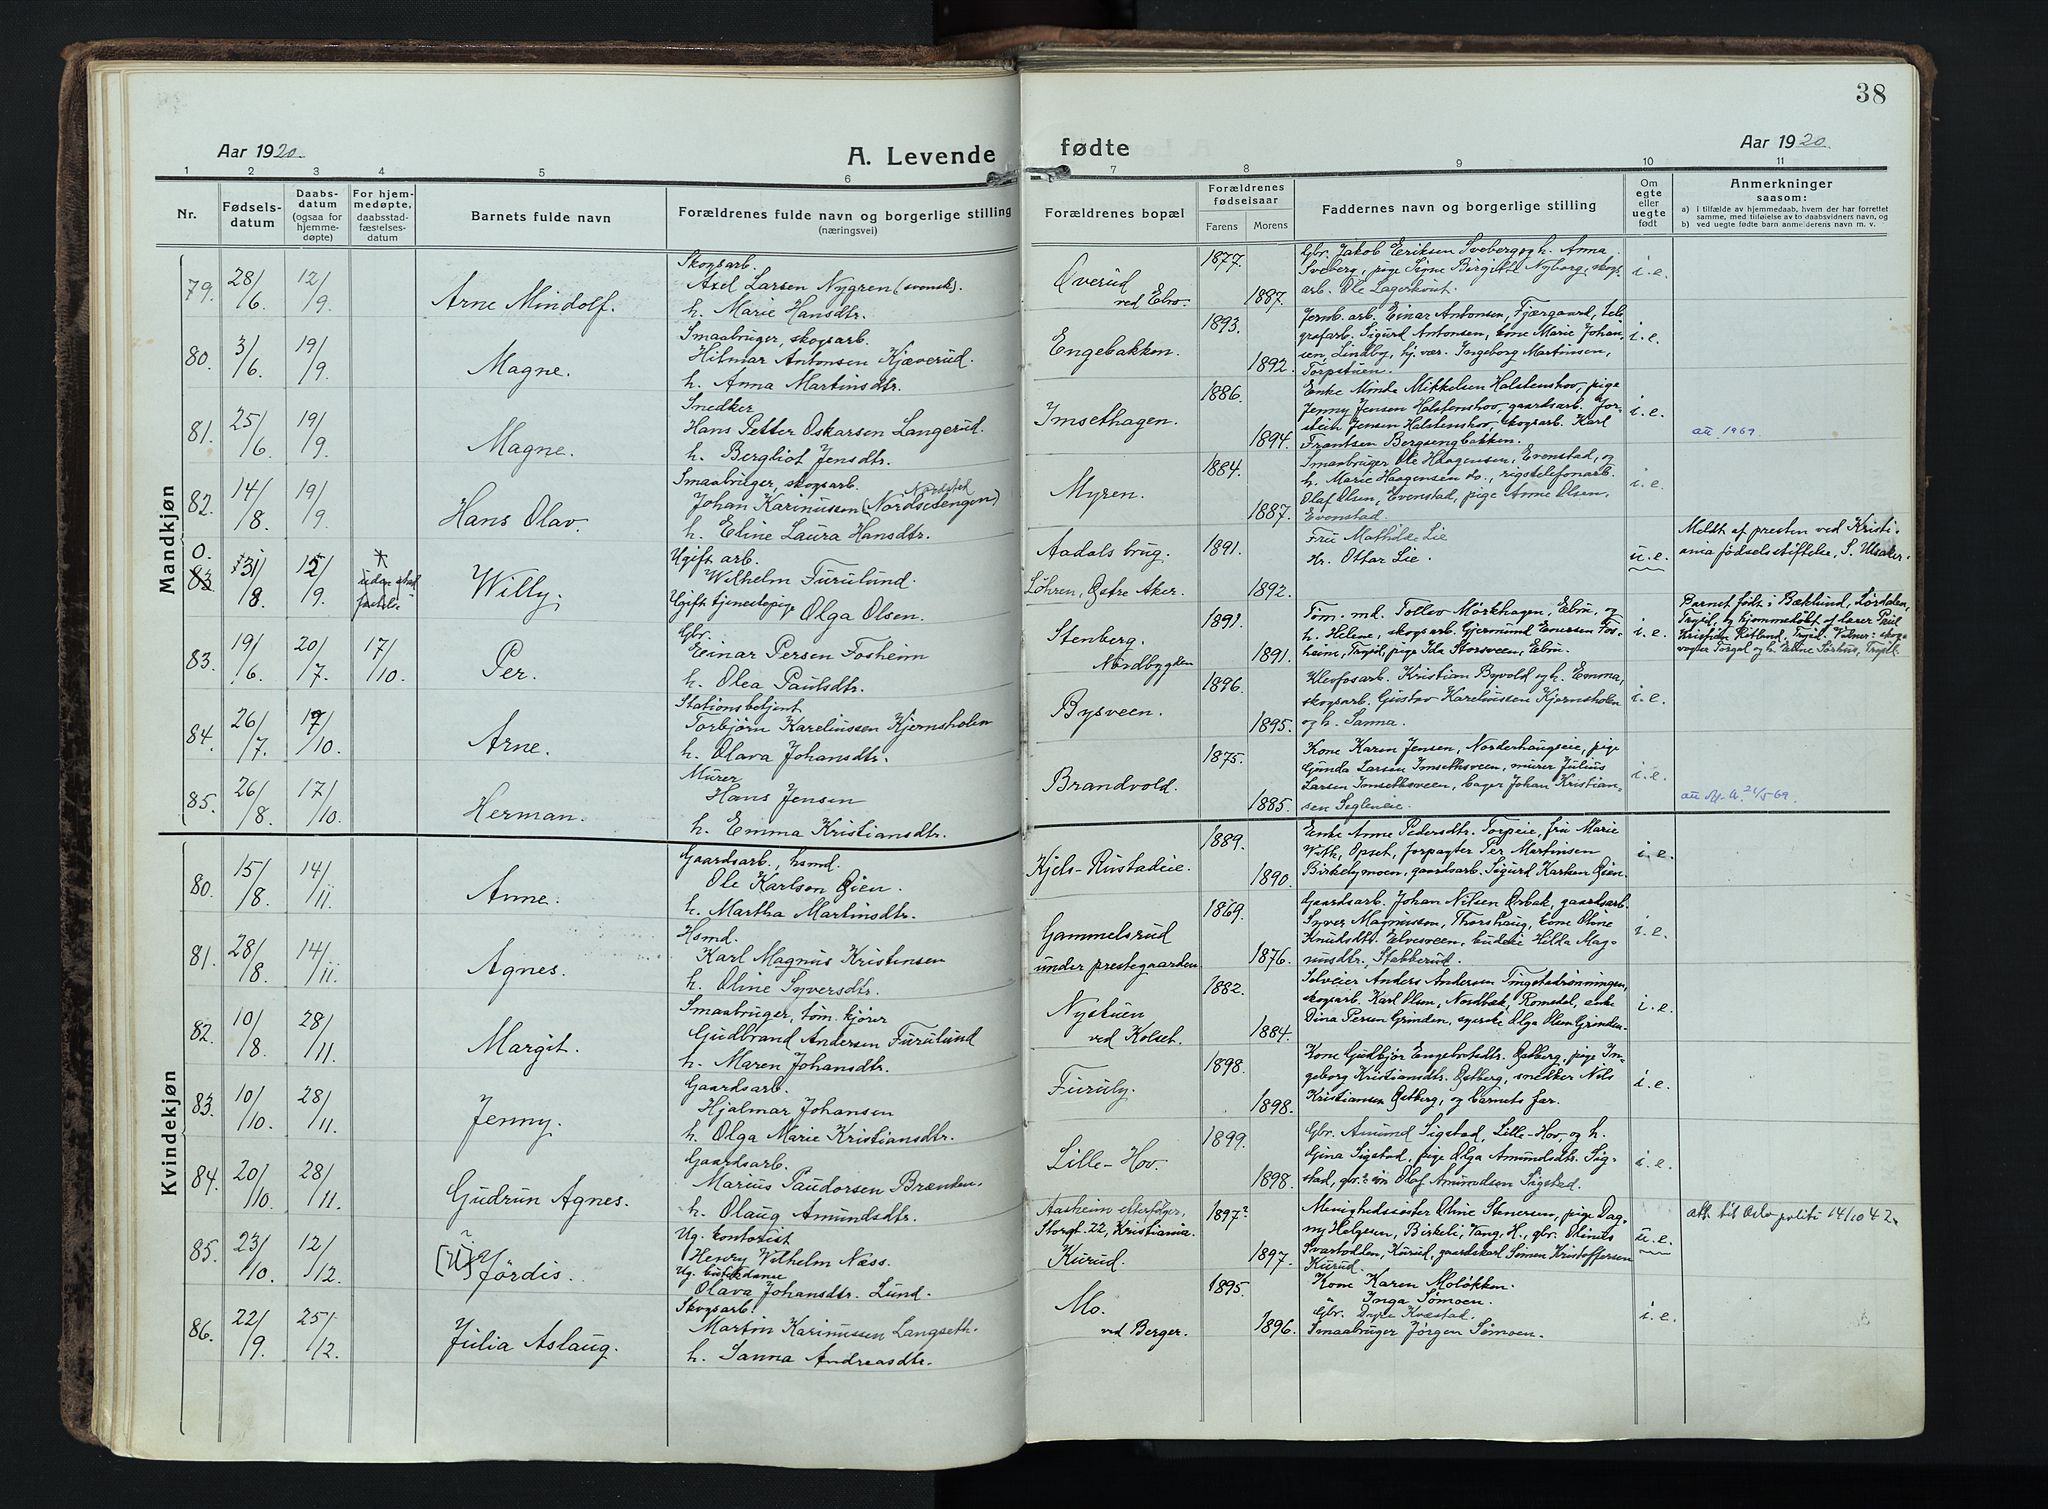 38
Aar 1920.
A. Levende
fødte
Aar 1920.
1 2 3 4 5 6 7 8 9 10 11
Nr.
Fødselsdatum
Daabsdatum (ogsaa for hjemmedøpte)
For hjemmedøpte, daabsstadfæstelsesdatum
Barnets fulde navn
Forældrenes fulde navn og borgerlige stilling (næringsvei)
Forældrenes bopæl
Forældrenes fødselsaar
Farens Morens
Faddernes navn og borgerlige stilling
Om egte eller uegte født
Anmerkninger saasom:
a) i tilfælde av hjemmedaab, hvem der har forrettet samme, med tilføielse av to daabsvidners navn, og
b) ved uegte fødte barn anmelderens navn m. v.
Mandkjøn
79. 28/6. 12/9. Arne Mindolf.
Skogsarb.
Axel Larsen Nygren (svensk).
h. Marie Hansdtr.
Øverud
ved Ebro.
1877. 1887.
Gbr. Jakob Eriksen Sveberg og h. Anna
Sveberg, pige Signe Birgitte Nyborg, skogs
arb. Ole Lagerkvist.
i. e.
80. 3/6. 19/9. Magne.
Smaabruger, skogsarb.
Hilmar Antonsen Kjæverud
h. Anna Martinsdtr.
Engebakken.
1893. 1892.
Jernb. arb. Einar Antonsen, Fjærgaard, tele
grafarb. Sigurd Antonsen, kone Marie Johan
sen, Lindby, hj. vær. Ingeborg Martinsen,
Torpstuen.
i. e.
81. 25/6. 19/9. Magne.
Snedker
Hans Petter Oskarsen Langerud.
h. Bergliot Jensdtr.
Imsethagen.
1886. 1894.
Enke Minda Mikkelsen Halstenshov, pige
Jenny Jensen Halstenshov, gaardsarb. Tor-
stein Jensen Halstenshov, skogsarb. Karl
Frantsen Bergsengbakken.
i. e.
att. 1969.
82. 14/8. 19/9. Hans Olav.
Smaabruger, skogsarb.
Nordstad
Johan Karinussen (Nordsetengen)
h. Eline Laura Hansdtr.
Myren.
1884. 1887.
Smaabruger Ole Haagensen, Evenstad, og
h. Marie Haagensen do., rigstelefonarb.
Olaf Olsen, Evenstad, pige Anne Olsen,
Evenstad.
i. e.
0. 83 31/8. 15/9. Willy.
Ugift arb.
Wilhelm Furulund.
Ugift tjenestepige Olga Olsen.
Aadals brug.
Løhren, Østre Aker.
1891. 1892.
Fru Mathilde Lie
Hr. Ottar Lie.
u. e.
Meldt af presten ved Kristi-
ania fødselsstiftelse, S. Utsaker.
83. 19/6. 20/7. 17/10. Per.
Gbr.
Einar Persen Fosheim
h. Olea Paulsdtr.
Stenberg.
Nordbygden
1891. 1891.
Tøm. md. Tollev Mørkhagen, Ebru, og
h. Helene, skogsarb. Gjermund Enersen Fos-
heim, Trysil, pige Ida Storsveen, Ebru.
i. e.
Barnet født i Bæklund, Sørdalen,
Trysil, og hjemmedøbt af lærer Peil
84. 26/7. 17/10. Arne.
Stationsbetjent
Torbjørn Kareliussen Kjernsholen
h. Olava Johansdtr.
Bysveen.
1896. 1895.
Klevfosarb. Kristian Byvold og h. Emma,
skogsarb. Gustav Kareliussen Kjernsholen
og h. Sanna.
i. e.
85. 26/8. 17/10. Herman.
Murer
Hans Jensen
h. Emma Kristiansdtr.
Brandvold.
1875. 1885.
Kone Karen Jensen, Norderhaugseie, pige
Gunda Larsen Imsethsveen, murer Julius
Larsen Imsethsveen, bager Johan Kristian-
sen Segleneie.
i. e.
Kvindekjøn
80. 15/8. 14/11. Anne.
Gaardsarb., hsmd.
Ole Karlson Øien.
h. Martha Martinsdtr.
Kjels-Rustadeie.
1889. 1890.
Enke Anne Pedersdtr. Torpeie, fru Marie
With, Opset, forpagter Per Martinsen
Birkelymoen, gaardsarb. Sigurd Karlsen Øien.
i. e.
81. 28/8. 14/11. Agnes.
Hsmd.
Karl Magnus Kristensen
h. Oline Syversdtr.
Gammelsrud
under prestegaarden
1869. 1876.
Gaardsarb. Johan Nilsen Orbak, gaardsarb.
Syver Magnussen, Thorshaug, kone Oline
Knudsdtr. Elvesveen, budeie Hilda Mag-
nusdtr., Stabberud.
i. e.
82. 10/8. 28/11. Margit.
Smaabruger, tøm. kjører
Gudbrand Andersen Furulund
h. Maren Johansdtr.
Nystuen
ved Kolset.
1882. 1884.
Selveier Anders Andersen Tingstadrønningen,
skogsarb. Karl Olsen, Nordbæk, Romedal, enke
Dina Persen Grinden, syerske Olga Olsen Grinden.
i. e.
83. 10/10. 28/11. Jenny.
Gaardsarb.
Hjalmar Johansen
h. Olga Marie Kristiansdtr.
Furuly.
1898. 1898.
Kone Gudbjør Engebretsdtr. Østberg, pige In-
geborg Kristiansdtr. Østberg, snedker Nils
Kristiansen Østberg, og barnets far.
i. e.
84. 20/10. 28/11. Gudrun Agnes.
Gaardsarb.
Marius Paudorsen Brænden.
h. Olaug Amundsdtr.
Lille-Hov.
1899. 1898.
Gbr. Amund Sigstad, Lille-Hov, og h.
Gina Sigstad, pige Olga Amundsdtr. Sig-
stad, gbr.søn Olaf Amundsen Sigstad.
i. e.
85. 23/10. 12/12. Jördis.
Ug. kontorist
Henry Wilhelm Næss.
Ug. butikdame
Olava Johansdtr. Lund.
Aasheim efterfølger,
Storgt. 22, Kristiania.
Kurud.
1897? 1897.
Menighedssøster Oline Stenersen, pige Dag-
ny Helgesen, Birkeli, Vang, H., gbr. Olinus
Svartodden, Kurud, gaardskarl Simen Kristoffersen
Kurud.
u. e.
att. til Oslo politi 14/10 42.
86. 22/9. 25/12. Julia Aslaug.
Skogsarb.
Martin Karinussen Langseth.
h. Sanna Andreasdtr.
Mo.
ved Berger.
1895. 1896.
Kone Karen Moløkken.
" Inga Sømoen.
Gbr. Dyre Kvæstad.
Smaabruger Jørgen Sømoen.
i. e.